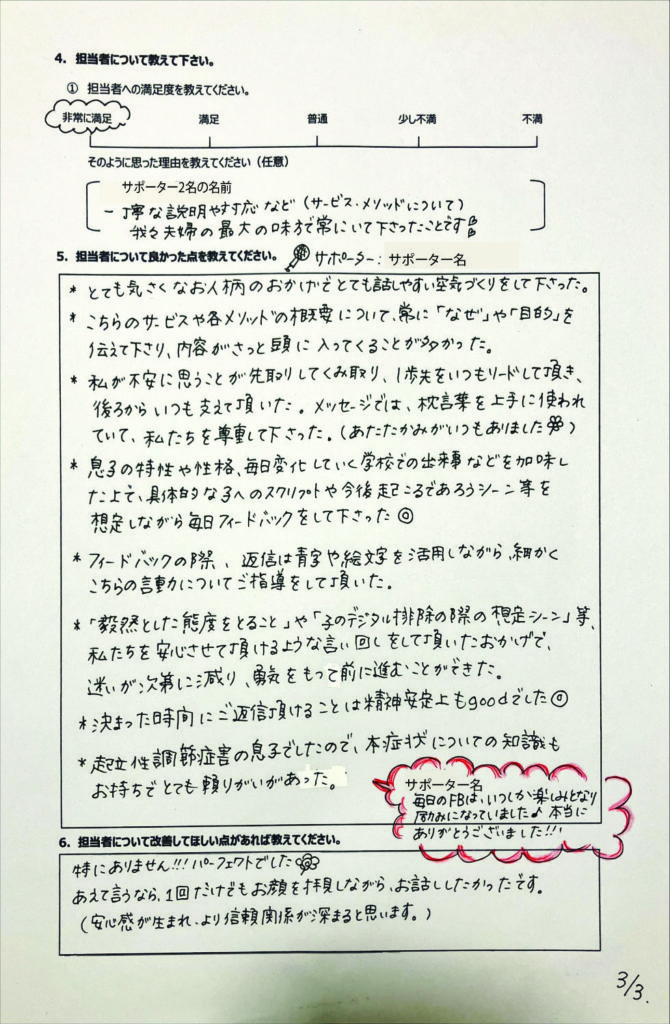 4. 担当者について教えて下さい。
① 担当者への満足度を教えてください。
非常に満足 満足 普通 少し不満 不満
そのように思った理由を教えてください（任意）
サポーター2名の名前
ー丁寧な説明やすす応など（サービス・メソッドについて）
我々夫婦の最大の味方で常にいて下さったことです
5. 担当者について良かった点を教えてください。 サポーター: サポーター名
* とても気さくなお人柄のおかげでとても話しやすい空気づくりをして下さった。
* こちらのサービスや各メソッドの概要について、常に「なぜ」や「目的」を
伝えて下さり、内容がさっと頭に入ってくることが多かった。
* 私が不安に思うことが先取りしてくみ取り、1歩先をいつもリードして頂き、
後ろからいつも支えて頂いた。メッセージでは、枕言葉を上手に使われ
ていて、私たちを尊重して下さった。（あたたかみがいつもありました）
* 息子の特性や性格、毎日変化していく学校での出来事などを加味し
た上で、具体的な子へのスクリプトや今後起こるであろうシーン等を
想定しながら毎日フィードバックをして下さった◎
* フィードバックの際、返信は青字や絵文字を活用しながら、細かく
こちらの言動についてご指導をして頂いた。
* 「毅然とした態度をとること」や「子のデジタル排除の際の想定シーン」等、
私たちを安心させて頂けるような言い回しをして頂いたおかげで、
迷いが次第に減り、勇気をもって前に進むことができた。
* 決まった時間にご返信頂けることは精神安定上もgoodでした◎
* 起立性調節症害の息子でしたので、本症状についての知識も
お持ちでとても頼りがいがあった。
サポーター名
毎日のFBは、いつしか楽しみとなり
励みになっていました♪ 本当に
ありがとうございました!!!
6. 担当者について改善してほしい点があれば教えてください。
特にありません!!! パーフェクトでした
あえて言うなら、1回だけでもお顔を拝見しながら、お話ししたかったです。
（安心感が生まれ、より信頼関係が深まると思います。）
3/3.